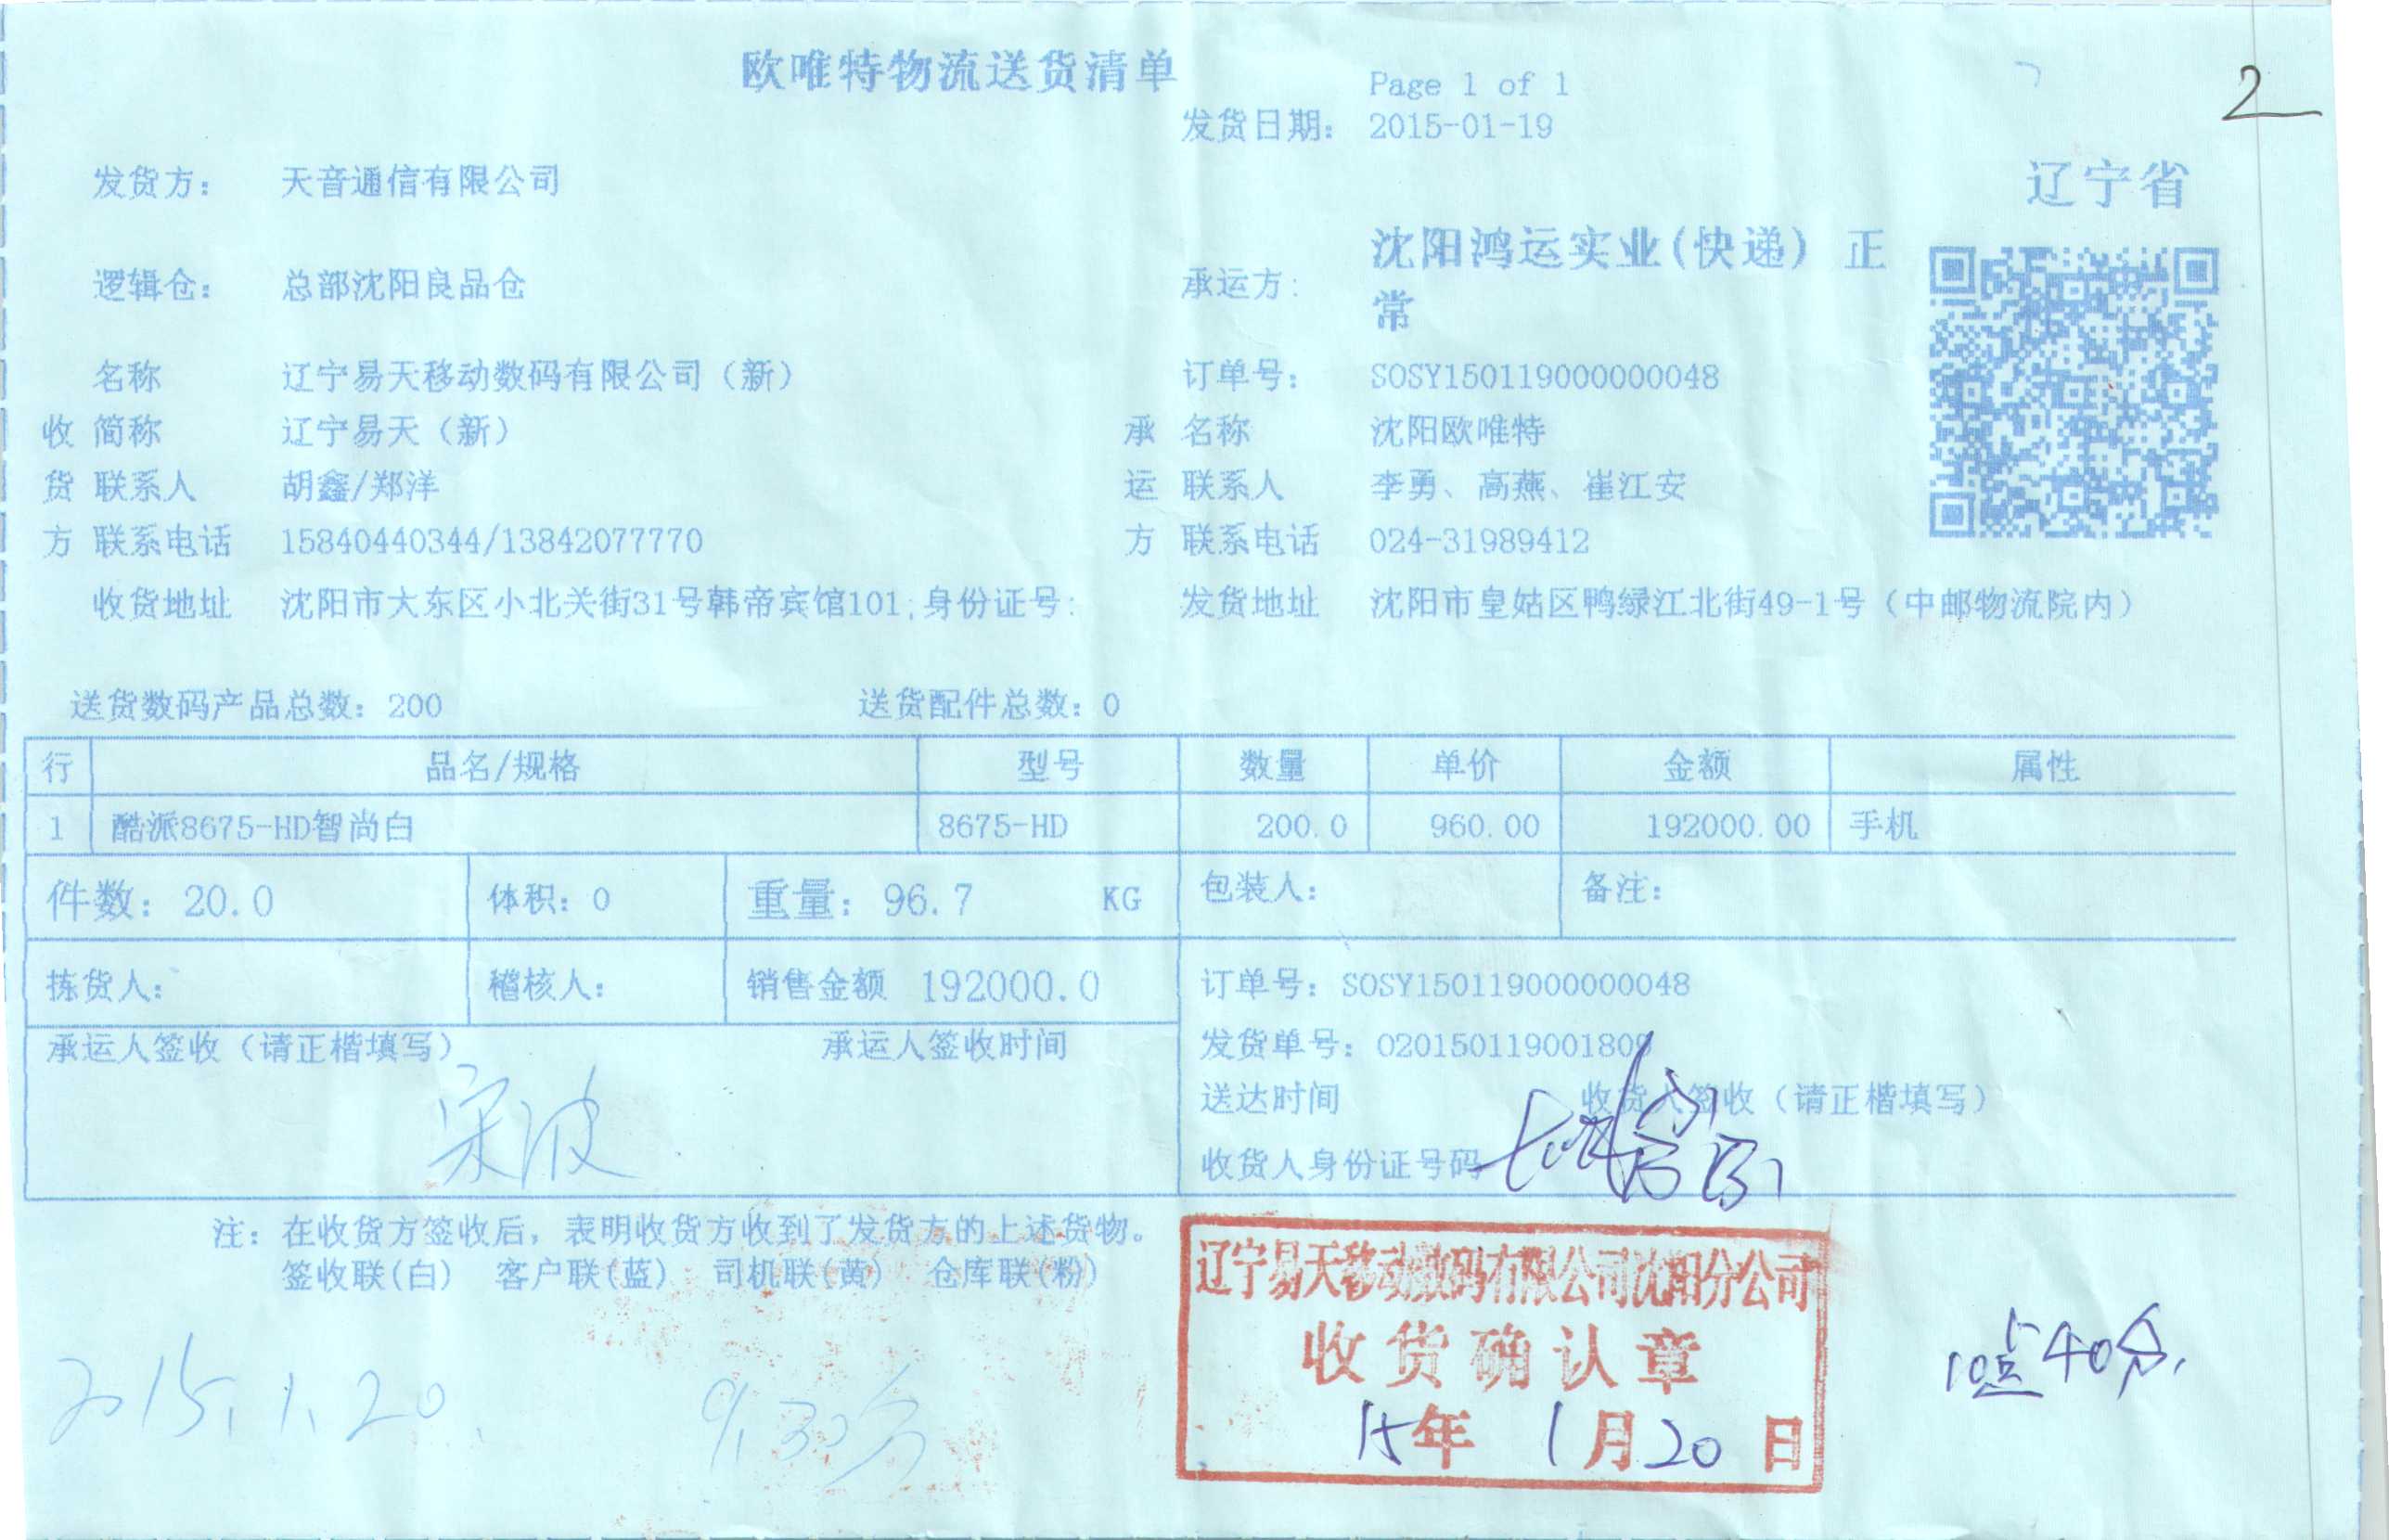 2
欧唯特物流送货清单
Page 1 of 1
发货日期: 2015-01-19
辽宁省
发货方: 天音通信有限公司
逻辑仓: 总部沈阳良品仓
承运方: 沈阳鸿运实业(快递) 正
常
名称 辽宁易天移动数码有限公司（新） 订单号: SOSY150119000000048
收 简称 辽宁易天（新） 承 名称 沈阳欧唯特
货 联系人 胡鑫/郑洋 运 联系人 李勇、高燕、崔江安
方 联系电话 15840440344/13842077770 方 联系电话 024-31989412
收货地址 沈阳市大东区小北关街31号韩帝宾馆101;身份证号: 发货地址 沈阳市皇姑区鸭绿江北街49-1号（中邮物流院内）
送货数码产品总数: 200 送货配件总数: 0
行 品名/规格 型号 数量 单价 金额 属性
1 酷派8675-HD智尚白 8675-HD 200.0 960.00 192000.00 手机
件数: 20.0 体积: 0 重量: 96.7 KG 包装人: 备注:
拣货人: 稽核人: 销售金额 192000.0 订单号: SOSY150119000000048
承运人签收（请正楷填写） 承运人签收时间 发货单号: 020150119001809
宋波
送达时间 收货人签收（请正楷填写）
收货人身份证号码
注: 在收货方签收后，表明收货方收到了发货方的上述货物。
签收联(白) 客户联(蓝) 司机联(黄) 仓库联(粉)
辽宁易天移动数码有限公司沈阳分公司
收货确认章
15年 1月20日
10点40分.
2015.1.20. 9.30分